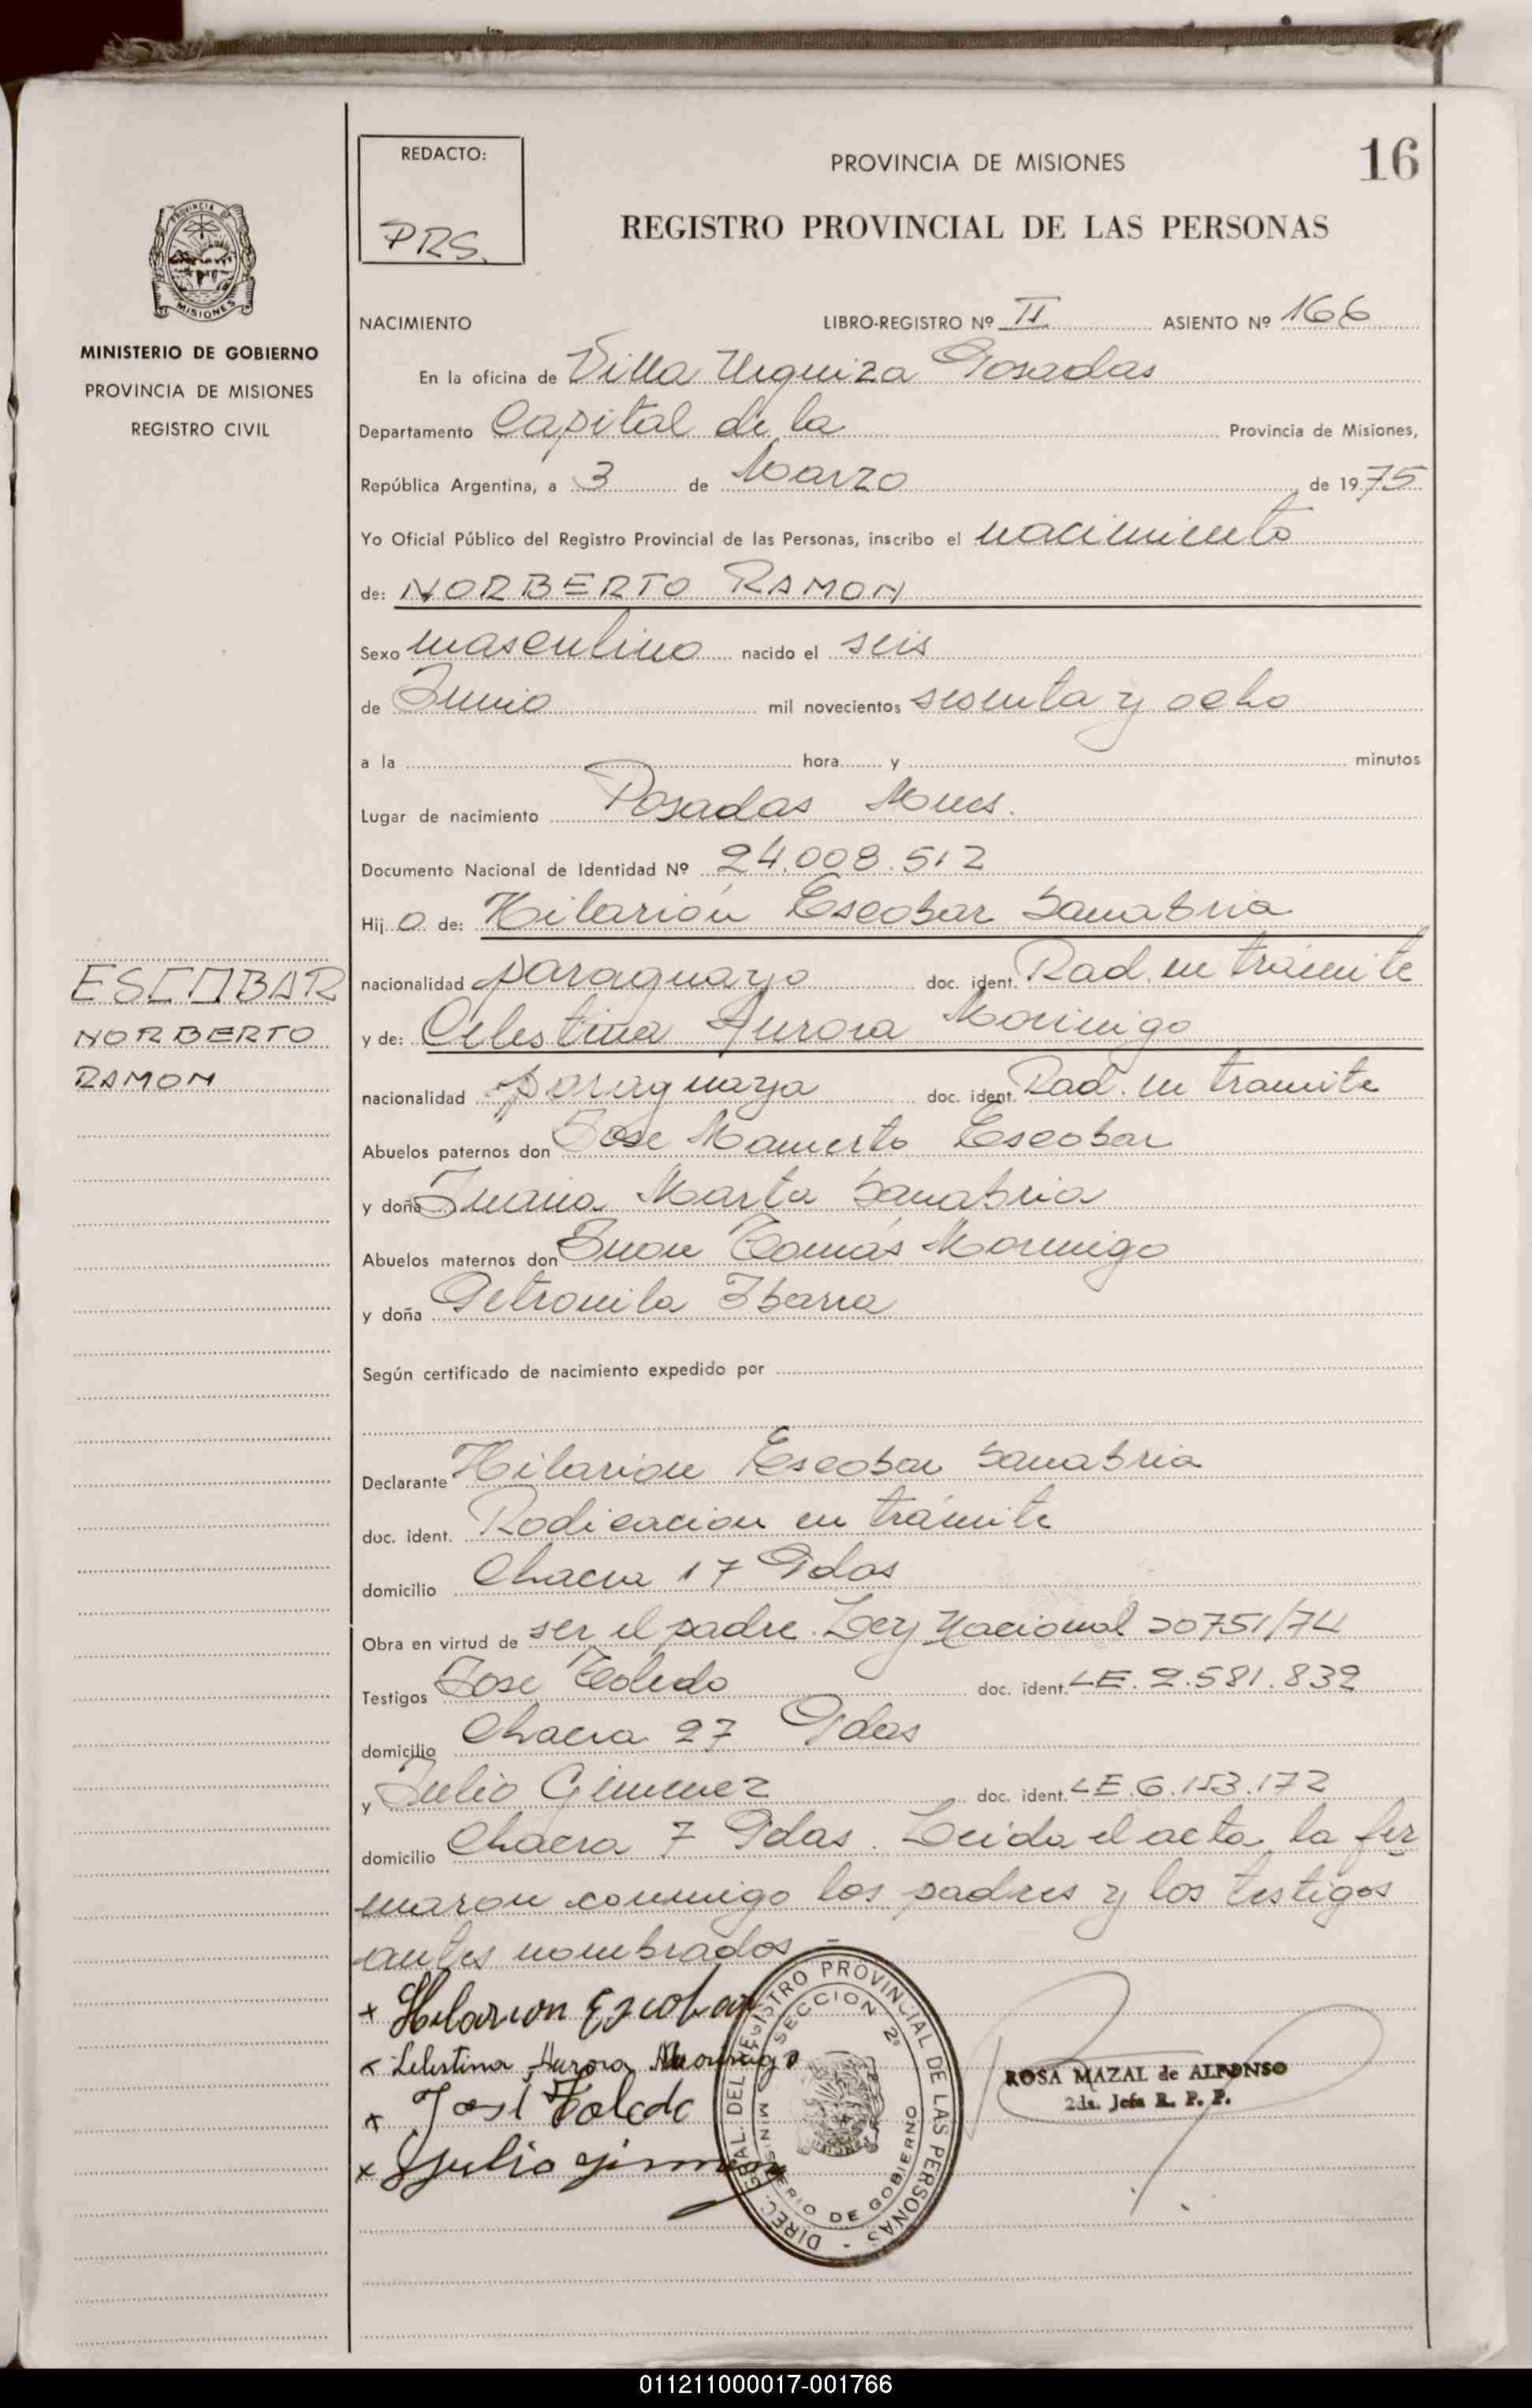 16
REDACTO:
PRS.
PROVINCIA DE MISIONES
REGISTRO PROVINCIAL DE LAS PERSONAS
PROVINCIA DE
MISIONES
MINISTERIO DE GOBIERNO
PROVINCIA DE MISIONES
REGISTRO CIVIL
NACIMIENTO LIBRO-REGISTRO Nº II ASIENTO Nº 166
En la oficina de Villa Urquiza Posadas
Departamento Capital de la Provincia de Misiones,
República Argentina, a 3 de Marzo de 1975
Yo Oficial Público del Registro Provincial de las Personas, inscribo el nacimiento
de: NORBERTO RAMON
Sexo masculino nacido el seis
de Junio mil novecientos sesenta y ocho
a la hora y minutos
Lugar de nacimiento Posadas Mnes.
Documento Nacional de Identidad Nº 24.008.512
Hij o de: Hilarión Escobar Sanabria
ESCOBAR
NORBERTO
RAMON
nacionalidad paraguayo doc. ident. Rad. en trámite
y de: Celestina Aurora Morinigo
nacionalidad paraguaya doc. ident. Rad. en tramite
Abuelos paternos don Jose Mamerto Escobar
y doña Juana Marta Sanabria
Abuelos maternos don Juan Tomás Morinigo
y doña Petronila Ibarra
Según certificado de nacimiento expedido por
Declarante Hilarion Escobar Sanabria
doc. ident. Radicacion en trámite
domicilio Chacra 17 Pdas
Obra en virtud de ser el padre. Ley Nacional 20751/74
Testigos Jose Toledo doc. ident. LE. 2.581.839
domicilio Chacra 27 Pdas
y Julio Gimenez doc. ident. LE. 6.153.172
domicilio Chacra 7 Pdas. Leida el acta la fir
maron conmigo los padres y los testigos
antes nombrados.-
x Hilarion Escobar
x Celestina Aurora Morinigo
x José Toledo
x Julio Gimenez
DIREC. GRAL. DEL REGISTRO PROVINCIAL DE LAS PERSONAS -
SECCION 2º
MINISTERIO DE GOBIERNO
ROSA MAZAL de ALFONSO
2da. Jefa R. P. P.
011211000017-001766